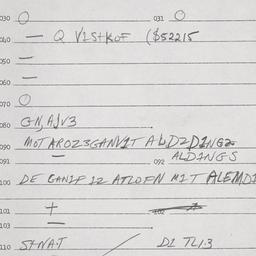 030 O 031 O
040 — Q V1StKOF ($52215
050 —
060 —
070 O
080 GN,AJV3
090 MOT AROZ3GANV1T ALDZD1NG2
091 — 092 ALD1NGS
100 DE GAN1F 12 ATLOFN M1T ALEMD1
101 +
103 —
110 StNAT / D1 TL1.3